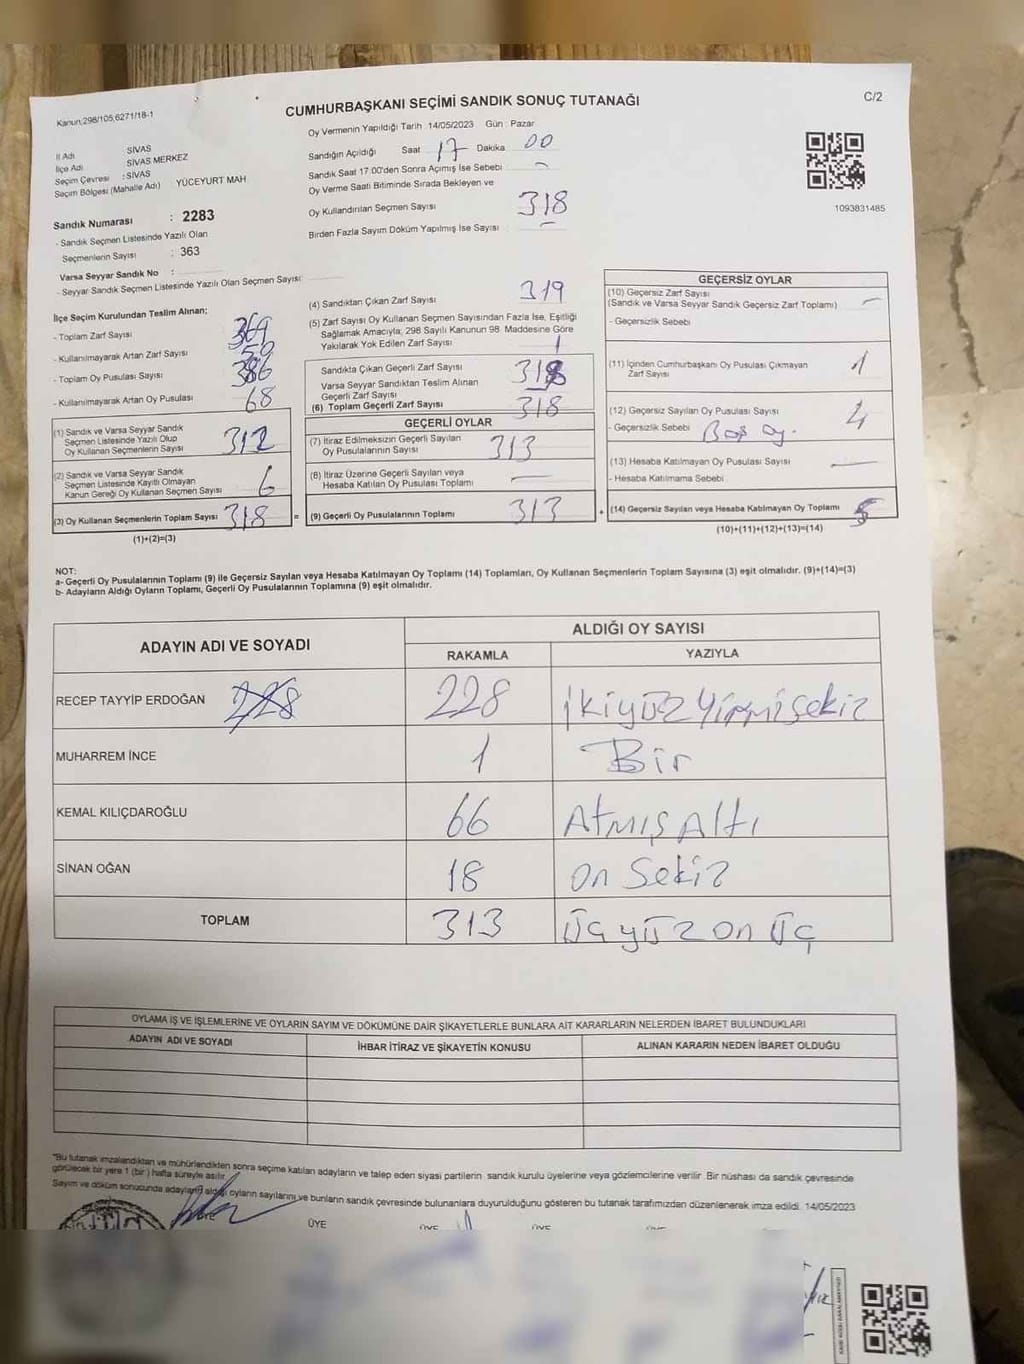 C/2
CUMHURBAŞKANI SEÇİMİ SANDIK SONUÇ TUTANAĞI
Kanun:298/105,6271/18-1
Oy Vermenin Yapıldığı Tarih 14/05/2023 Gün : Pazar
İl Adı SİVAS
İlçe Adı SİVAS MERKEZ
Seçim Çevresi : SİVAS
Seçim Bölgesi (Mahalle Adı) YÜCEYURT MAH
Sandık Numarası : 2283
- Sandık Seçmen Listesinde Yazılı Olan
Seçmenlerin Sayısı : 363
Varsa Seyyar Sandık No :
- Seyyar Sandık Seçmen Listesinde Yazılı Olan Seçmen Sayısı:
Sandığın Açıldığı Saat 17 Dakika 00
Sandık Saat 17:00'den Sonra Açımış İse Sebebi
Oy Verme Saati Bitiminde Sırada Bekleyen ve
Oy Kullandırılan Seçmen Sayısı 318
Birden Fazla Sayım Döküm Yapılmış İse Sayısı –
1093831485
İlçe Seçim Kurulundan Teslim Alınan;
- Toplam Zarf Sayısı
- Kullanılmayarak Artan Zarf Sayısı
- Toplam Oy Pusulası Sayısı 386
- Kullanılmayarak Artan Oy Pusulası 68
(1) Sandık ve Varsa Seyyar Sandık
Seçmen Listesinde Yazılı Olup
Oy Kullanan Seçmenlerin Sayısı 312
(2) Sandık ve Varsa Seyyar Sandık
Seçmen Listesinde Kayıtlı Olmayan
Kanun Gereği Oy Kullanan Seçmen Sayısı 6
(3) Oy Kullanan Seçmenlerin Toplam Sayısı 318 =
(1)+(2)=(3)
(4) Sandıktan Çıkan Zarf Sayısı 319
(5) Zarf Sayısı Oy Kullanan Seçmen Sayısından Fazla İse, Eşitliği
Sağlamak Amacıyla; 298 Sayılı Kanunun 98. Maddesine Göre
Yakılarak Yok Edilen Zarf Sayısı 1
Sandıkta Çıkan Geçerli Zarf Sayısı 318
Varsa Seyyar Sandıktan Teslim Alınan
Geçerli Zarf Sayısı –
(6) Toplam Geçerli Zarf Sayısı 318
GEÇERLİ OYLAR
(7) İtiraz Edilmeksizin Geçerli Sayılan
Oy Pusulalarının Sayısı 313
(8) İtiraz Üzerine Geçerli Sayılan veya
Hesaba Katılan Oy Pusulası Toplamı —
(9) Geçerli Oy Pusulalarının Toplamı 313 +
GEÇERSİZ OYLAR
(10) Geçersiz Zarf Sayısı
(Sandık ve Varsa Seyyar Sandık Geçersiz Zarf Toplamı) –
- Geçersizlik Sebebi
(11) İçinden Cumhurbaşkanı Oy Pusulası Çıkmayan
Zarf Sayısı 1
(12) Geçersiz Sayılan Oy Pusulası Sayısı 4
- Geçersizlik Sebebi Boş oy.
(13) Hesaba Katılmayan Oy Pusulası Sayısı —
- Hesaba Katılmama Sebebi
(14) Geçersiz Sayılan veya Hesaba Katılmayan Oy Toplamı 5
(10)+(11)+(12)+(13)=(14)
NOT:
a- Geçerli Oy Pusulalarının Toplamı (9) ile Geçersiz Sayılan veya Hesaba Katılmayan Oy Toplamı (14) Toplamları, Oy Kullanan Seçmenlerin Toplam Sayısına (3) eşit olmalıdır. (9)+(14)=(3)
b- Adayların Aldığı Oyların Toplamı, Geçerli Oy Pusulalarının Toplamına (9) eşit olmalıdır.
ADAYIN ADI VE SOYADI
ALDIĞI OY SAYISI
RAKAMLA YAZIYLA
RECEP TAYYİP ERDOĞAN 228 228 ikiyüz Yirmisekiz
MUHARREM İNCE 1 Bir
KEMAL KILIÇDAROĞLU 66 Atmış Altı
SİNAN OĞAN 18 on Sekiz
TOPLAM 313 üçyüz on üç
OYLAMA İŞ VE İŞLEMLERİNE VE OYLARIN SAYIM VE DÖKÜMÜNE DAİR ŞİKAYETLERLE BUNLARA AİT KARARLARIN NELERDEN İBARET BULUNDUKLARI
ADAYIN ADI VE SOYADI İHBAR İTİRAZ VE ŞİKAYETİN KONUSU ALINAN KARARIN NEDEN İBARET OLDUĞU
"Bu tutanak imzalandıktan ve mühürlendikten sonra seçime katılan adayların ve talep eden siyasi partilerin sandık kurulu üyelerine veya gözlemcilerine verilir. Bir nüshası da sandık çevresinde
görülecek bir yere 1 (bir) hafta süreyle asılır.
Sayım ve döküm sonucunda adayların aldığı oyların sayılarını ve bunların sandık çevresinde bulunanlara duyurulduğunu gösteren bu tutanak tarafımızdan düzenlenerek imza edildi. 14/05/2023
ÜYE ÜYE ÜYE